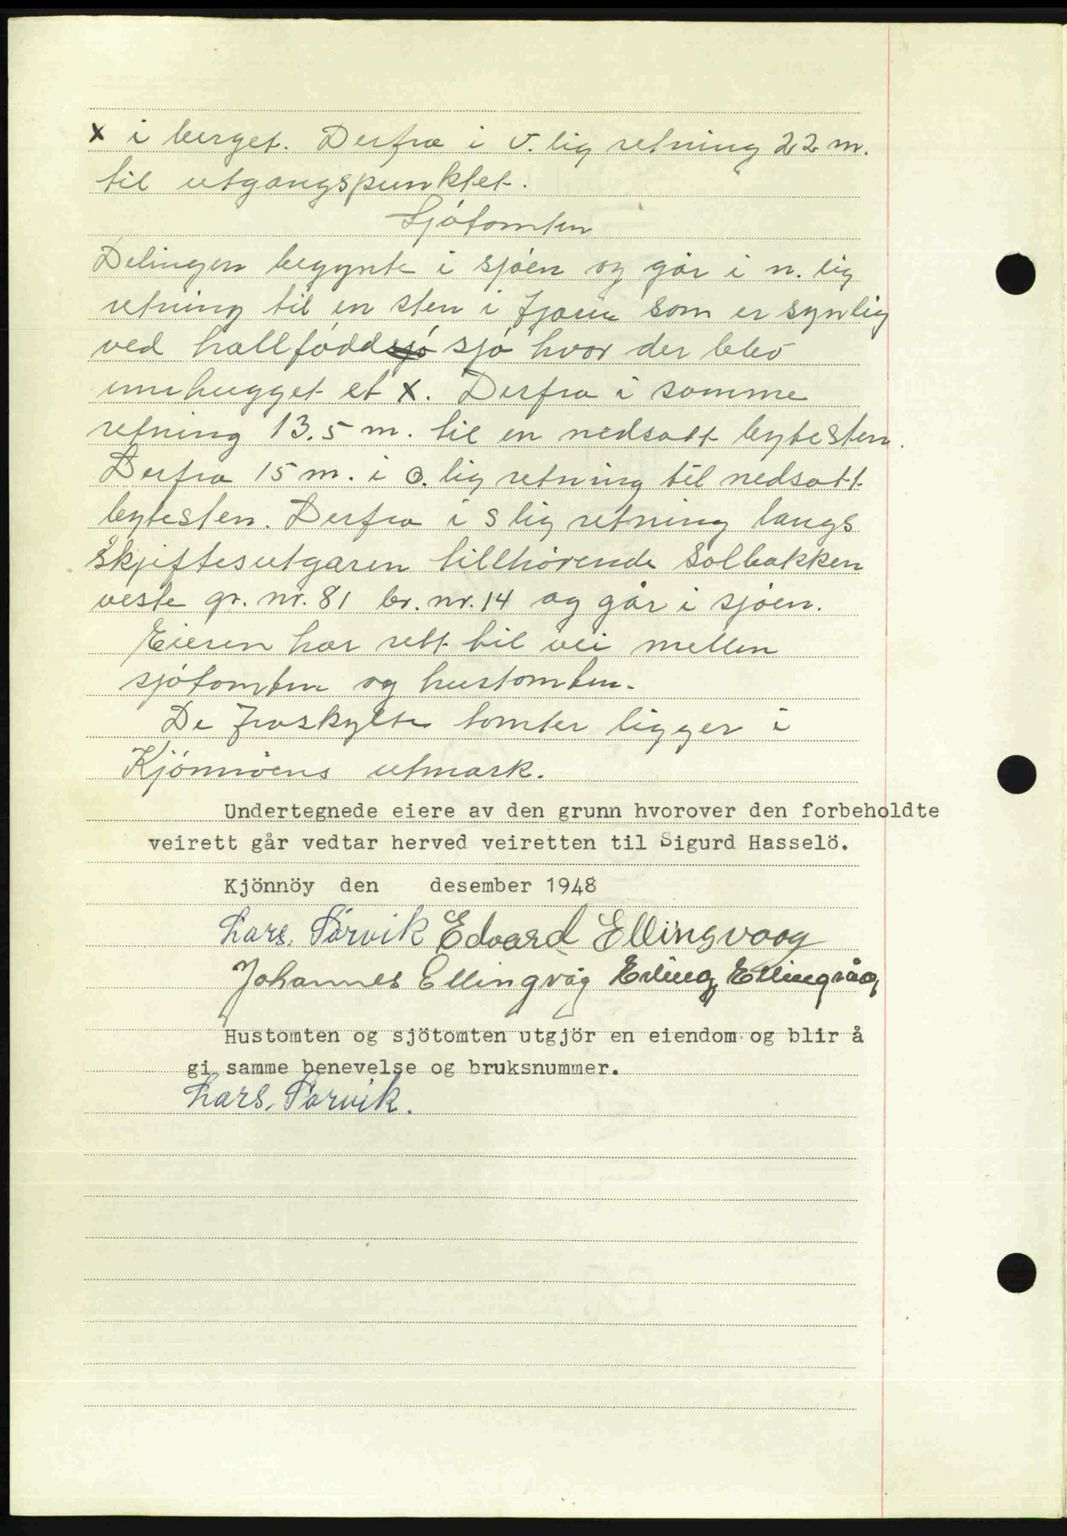 x i berget. Derfra i v. lig retning 22 m.
til utgangspunktet.
Sjötomten
Delingen begynte i sjöen og går i n. lig
retning til en sten i fjæra som er synlig
ved hallfödd sjö sjö hvor der blev
innhugget et x. Derfra i samme
retning 13.5 m. til en nedsatt bytesten.
Derfra 15 m. i ö. lig retning til nedsatt
bytesten. Derfra i s lig retning langs
Skjiftesutgaren tillhörende Solbakken
veste gr. nr. 81 br. nr. 14 og går i sjöen.
Eieren har rett til vei mellem
sjötomten og hustomten.
De fraskylte tomter ligger i
Kjönnöens utmark.
Undertegnede eiere av den grunn hvorover den forbeholdte
veirett går vedtar herved veiretten til Sigurd Hasselö.
Kjönnöy den desember 1948
Lars. Sörvik Edvard Ellingvaag
Johannes Ellingvåg Erling Ellingvåg
Hustomten og sjötomten utgjör en eiendom og blir å
gi samme benevelse og bruksnummer.
Lars. Sörvik.